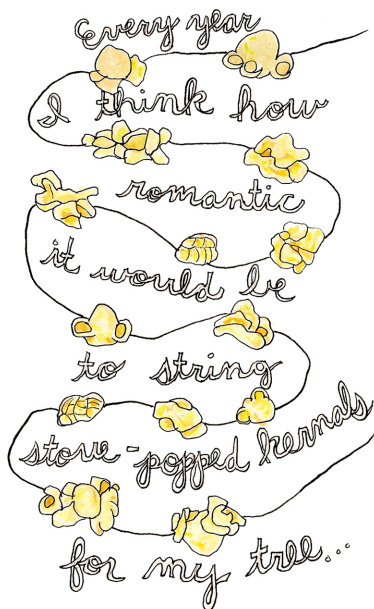 Every year
I think how
romantic
it would be
to string
stove-popped kernals
for my tree...